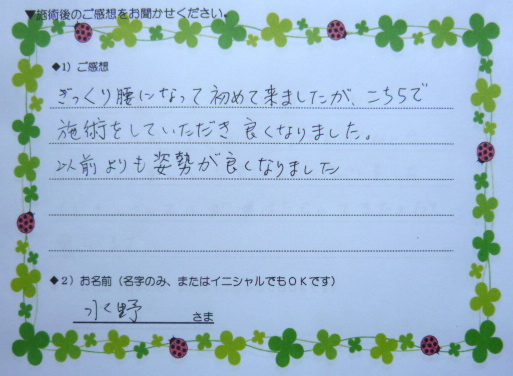 ▼施術後のご感想をお聞かせください。
◆1）ご感想
ぎっくり腰になって初めて来ましたが、こちらで
施術をしていただき良くなりました。
以前よりも姿勢が良くなりました
◆2）お名前（名字のみ、またはイニシャルでもＯＫです）
水野 さま